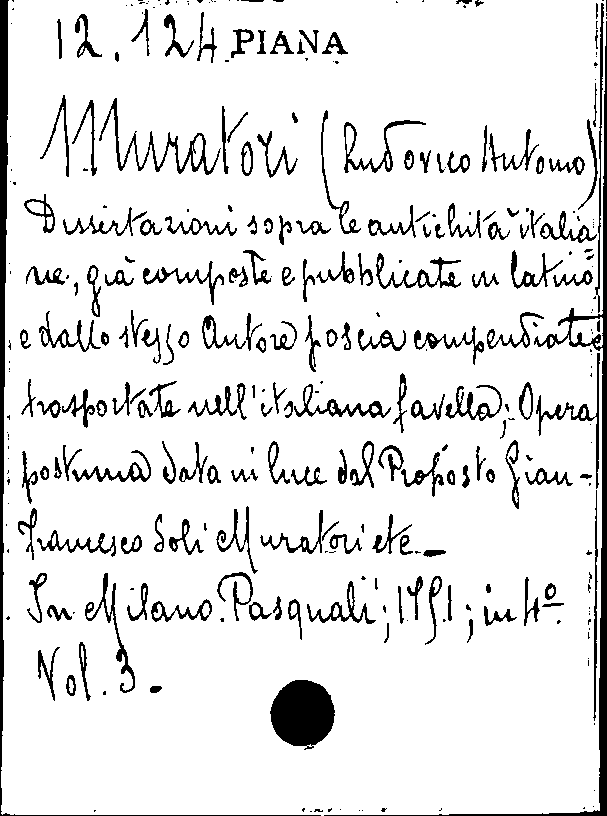 12.124 PIANA
Muratori (Ludovico Antonio)
Dissertazioni sopra le antichità italia=
ne, già composte e pubblicate in latino,
e dallo stesso Autore poscia compendiate e
trasportate nell'italiana favella; Opera
postuma data in luce dal Proposto Gian-
francesco Soli Muratori etc. –
In Milano. Pasquali; 1751; in 4º.
Vol. 3. -